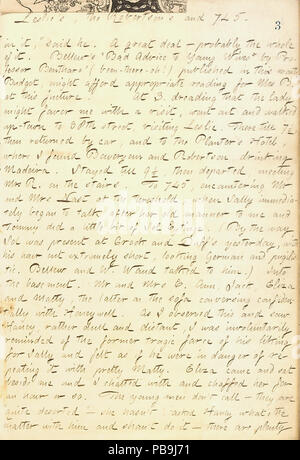 Leslie's. The Robertson's and 745.
3
in it," said he. A great deal — probably the whole
of it. Bellew's "Bad Advice to Young Wives by Pro
fessor Bentham" (been-there-oh!) published in this month's
Budget, might afford appropriate reading for Mrs B.
at this juncture. At 3, dreading that the lady
might favor me with a visit, went out and walked
up-town to St, visiting Leslie. There till 7½
then returned by car, and to the Planter's Hotel
where I found Boweryem and Robertson drinking
Madeira. Stayed till 9½ then departed, meeting
Mrs R. on the stairs. To 745, encountering Mr
and Mrs at the threshold, when Sally immedia-
tely began to talk after her old manner to me and
did a little bit of Sol E. (By the way
Sol was present at Crook and Duff's yesterday, with
his hair cut extremely short, looking German and pugilis-
tic. Bellew and W. Waud talked to him.) Into
the basement. Mr and Mrs E. Ann, Jack. Eliza
and Matty, the latter on the sofa conversing confiden-
tially with Honeywell. As I observed this and saw
Haney, rather dull and distant, I was involuntarily
reminded of the former tragic farce of his liking
for Sally and felt as if he were in danger of re-
peating it with pretty Matty. Eliza came and set
beside me and I chatted with and chaffed her for
an hour or so. The young men don't call — they are
quite deserted — she hasn't asked Haney what's the
matter with him and shan't do it — there are plenty
alamy
Image ID: PB9J71
www.alamy.com